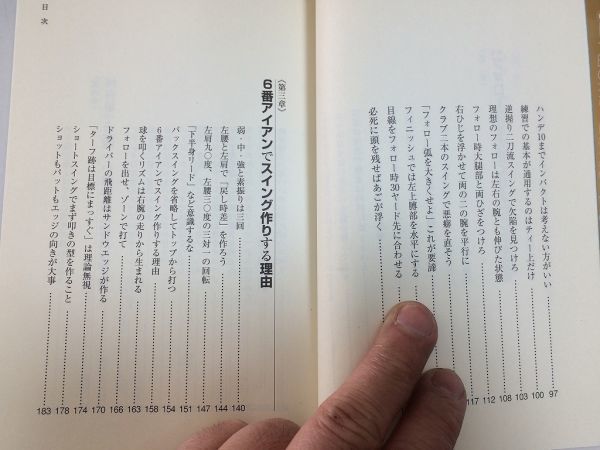 ハンデ10までインパクトは考えない方がいい 97
練習での基本が通用するのはティー上だけ 100
逆握り二刀流スイングで欠陥を見つけろ 103
理想のフォローは左右の腕とも伸びた状態 108
フォロー時大腿部と両ひざをつけろ 112
右ひじを浮かせて両の二の腕を平行に 117
クラブ二本のスイングで悪癖を直そう
「フォロー弧を大きくせよ」これが要諦
フィニッシュでは左上膊部を水平にする
目線をフォロー時30ヤード先に合わせる
必死に頭を残せばあごが浮く
〈第三章〉
6番アイアンでスイング作りする理由
弱・中・強と素振りは三回 140
左腰と左肩で「戻し時差」を作ろう 144
左肩九〇度、左腰三〇度の三対一の回転 147
「下半身リード」など意識するな 151
バックスイングを省略してトップから打つ 154
6番アイアンでスイング作りする理由 158
球を叩くリズムは右腕の走りから生まれる 163
フォローを出せ、ゾーンで打て 166
ドライバーの飛距離はサンドウエッジが作る 170
「ターフ跡は目標にまっすぐ」は理論無視 174
ショートスイングでまず叩きの型を作ること 178
ショットもパットもエッジの向きが大事 183
目次